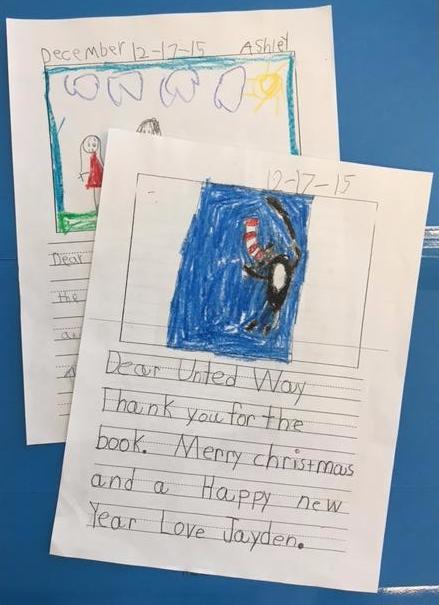 December 12-17-15 Ashley
Dear
the
12-17-15
Dear Unted Way
Thank you for the
book. Merry christmas
and a Happy new
Year Love Jayden.